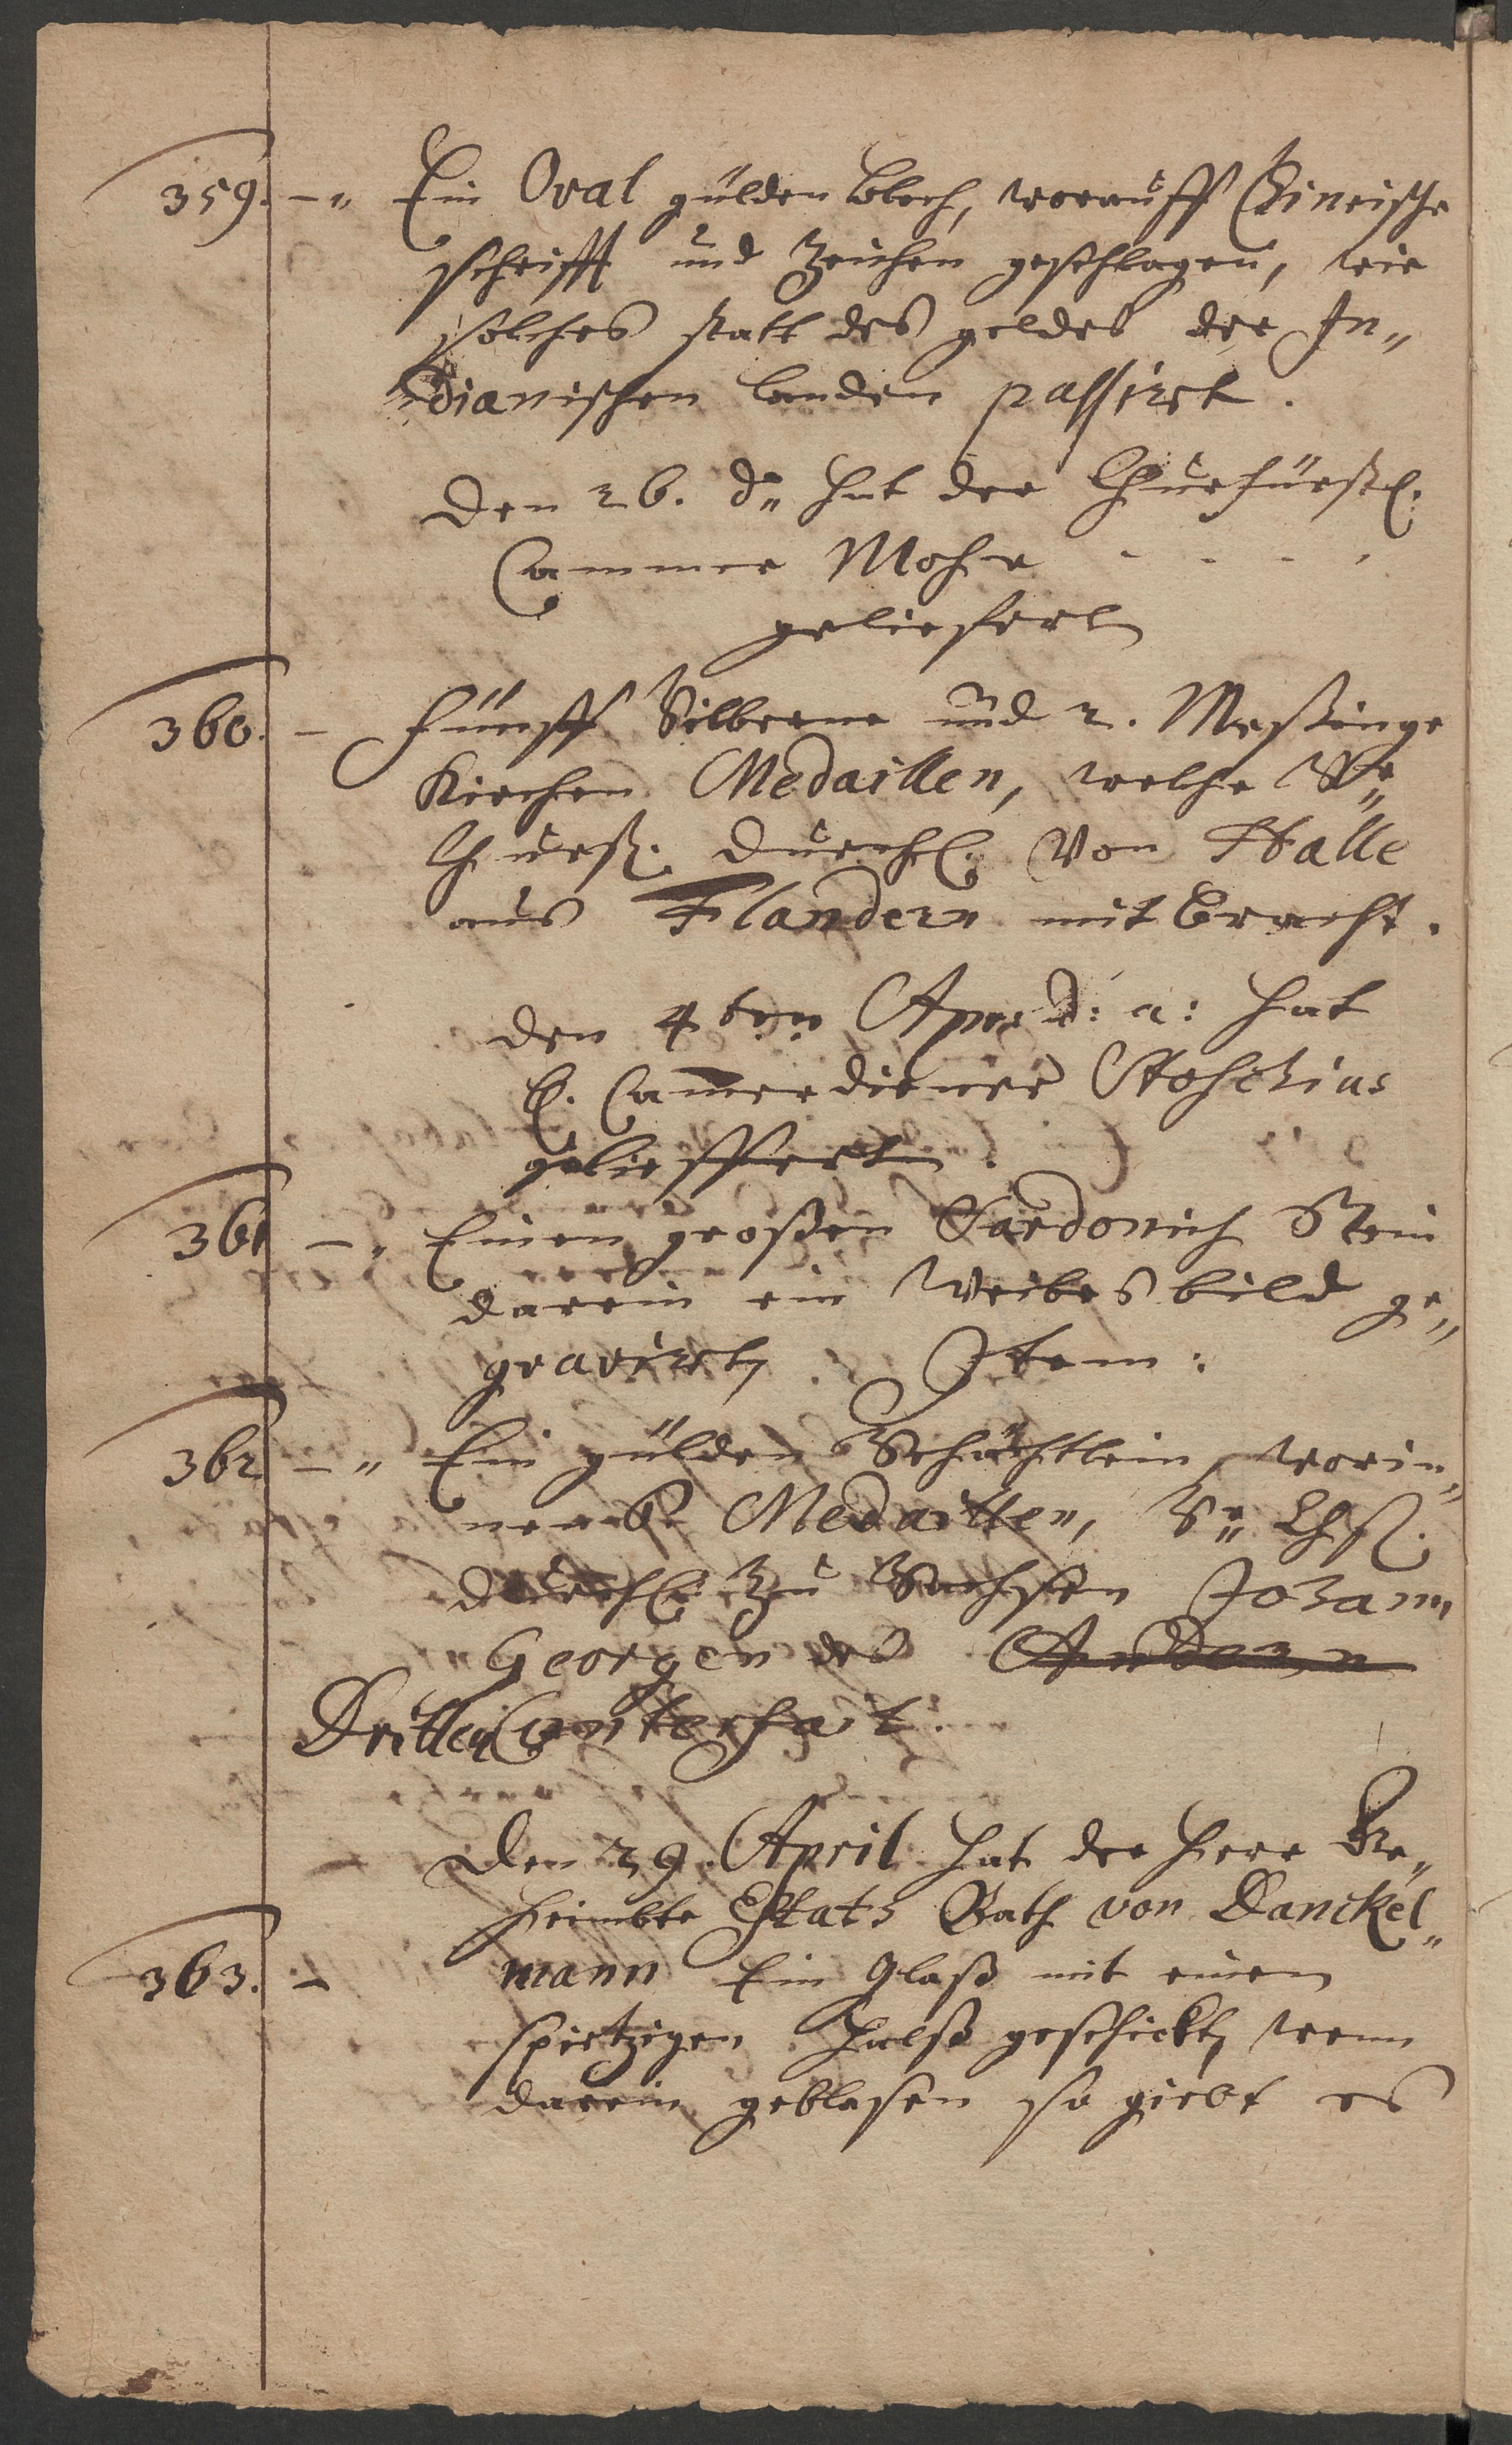 359. - „ Ein Oval gülden blech, worauff Chineische
schrifft und Zeichen geschlagen, wie
solches statt des geldes der In„
dianischen landen passiret.
Den 26. do hat der Churfürstl.
Cammer Mohr - - - -
geliefert
360. - Fünff Silberne und 2. Meßinge
Kirchen Medaillen, welche Sr
Churfl. Durchl. Von Halle
aus Flandern mit bracht.
Den 4ten Apr: d: a: hat
H. Camerdiener Stoschius
gelieffert.
361 - „ Einen großen Sardonich Stein
darein ein Weibesbild ge„
graviret, Item:
362 - „ Ein gülden Schächtlein, worin„
nen 6 Medaillen, Sr Chfl.
Durchl. Zu Sachsen Johann
Georgen des Andern
Dritten Conterfait.
Den 29. April hat der Herr Ge„
heimbte Estats Rath von Danckel„
363. - mann Ein Glaß mit einem
spietzigen Halß geschickt, wenn
darein geblasen so giebt es